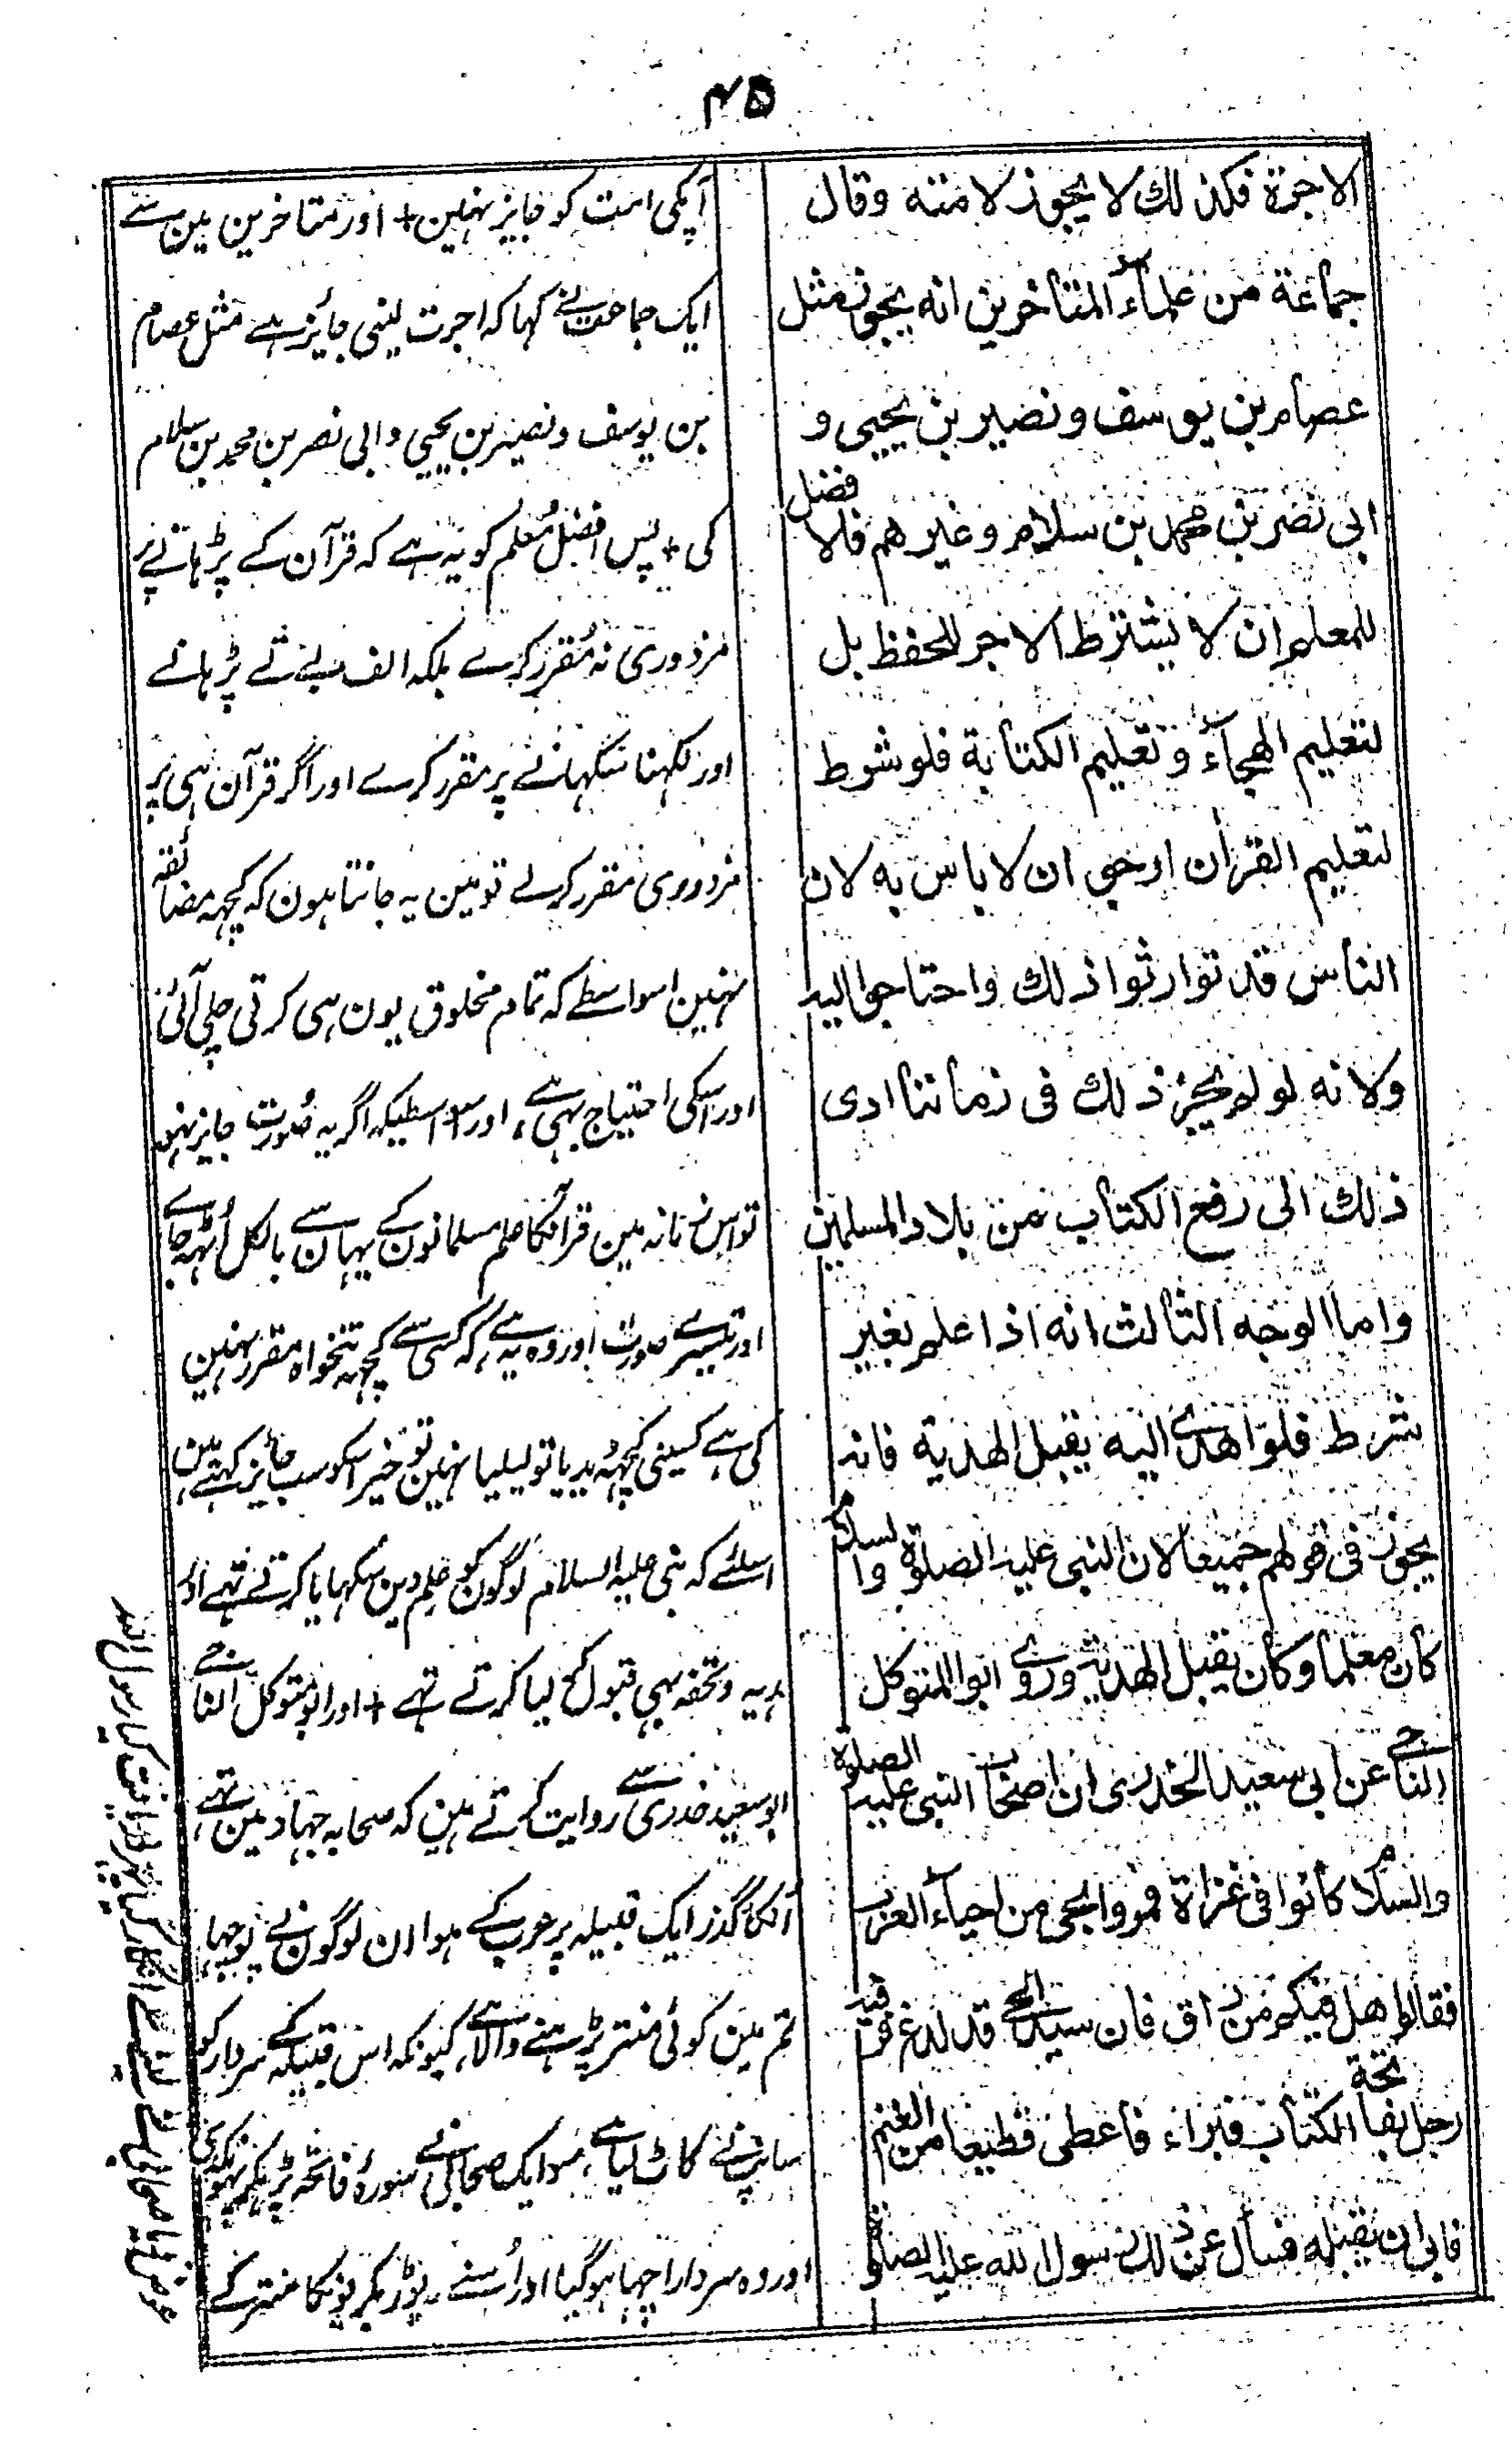 ۴۵
الاجرة فكذلك لا يجوز لامته وقال
جماعة من علماء المتاخرين انه يجوز مثل
عصام بن يوسف ونصير بن يحيى و
ابى نصر بن محمد بن سلام وغيرهم فالافضل
للمعلم ان لا يشترط الاجر للحفظ بل
لتعليم الهجاء وتعليم الكتابة فلو شرط
لتعليم القرآن ارجى ان لا باس به لان
الناس قد توارثوا ذلك واحتاجوا اليه
ولانه لو لم يجز ذلك فى زماننا ادى
ذلك الى رفع الكتاب من بلاد المسلمين
واما الوجه الثالث انه اذا علم بغير
شرط فلو اهدى اليه يقبل الهدية فانه
يجوز فى قولهم جميعا لان النبى عليه الصلوة والسلام
كان معلما وكان يقبل الهدية وروى ابو المتوكل
الناجى عن ابى سعيد الخدرى ان اصحاب النبى عليه الصلوة
والسلام كانوا فى غزاة فمروا بحى من احياء العرب
فقالوا هل فيكم من راق فان سيد الحى قد لدغ فرقيه
رجل بفاتحة الكتاب فبراء فاعطى قطيعا من الغنم
فابى ان يقبله فسأل عن ذلك رسول الله عليه الصلوة
آپکی امت کو جایز نہین + اور متاخرین مین سے
ایک جماعت نے کہا کہ اجرت لینی جایز ہے مثل عصام
بن یوسف و نصیر بن یحیی و ابی نصر بن محمد بن سلام
کی + پس افضل معلم کو یہ ہے کہ قرآن کے پڑہانے پر
مزدوری نہ مقرر کرے بلکہ الف بے تے پڑہانے
اور لکہنا سکہانے پر مقرر کرے اور اگر قرآن ہی پر
مزدوری مقرر کرلے تو مین یہ جانتا ہون کہ کچہہ مضائقہ
نہین اسواسطے کہ تمام مخلوق یون ہی کرتی چلی آئی
اور اسکی احتیاج بہی ہے، اور اسواسطیکہ اگر یہ صورت جایز نہو
تو اس زمانہ مین قرآنکا علم مسلمانون کے یہان سے بالکل اُٹہہ جاے
اور تیسرے صورت اور وہ یہ ہے، کہ کسی سے کچہہ تنخواہ مقرر نہین
کی ہے کسینی کچہہ ہدیہ دیا تو لیلیا نہین تو خیر اسکو سب جایز کہتے ہین
اسلئے کہ نبی علیہ السلام لوگون کو علم دین سکہایا کرتے تہے اور
ہدیہ و تحفہ بہی قبول کر لیا کرتے تہے + اور ابو متوکل الناجے
ابو سعید خدری سے روایت کرتے ہین کہ صحابہ جہاد مین تہے،
اُنکا گذر ایک قبیلہ پر عرب کے ہوا ان لوگون نے پوچہا،
تم مین کوئی منتر پڑہنے والا ہے، کیونکہ اس قبیلہ کے سردار کو
سانپ نے کاٹ لیا ہے، سو ایک صحابی نے سورہ فاتحہ پڑہکر پہونکدی
اور وہ سردار اچہا ہوگیا اور اُسنے ریوڑ بکریونکا منتر کے
عوض دیا صحابی نے لینے سے انکار کیا پہر دریافت کیا رسول اللہ